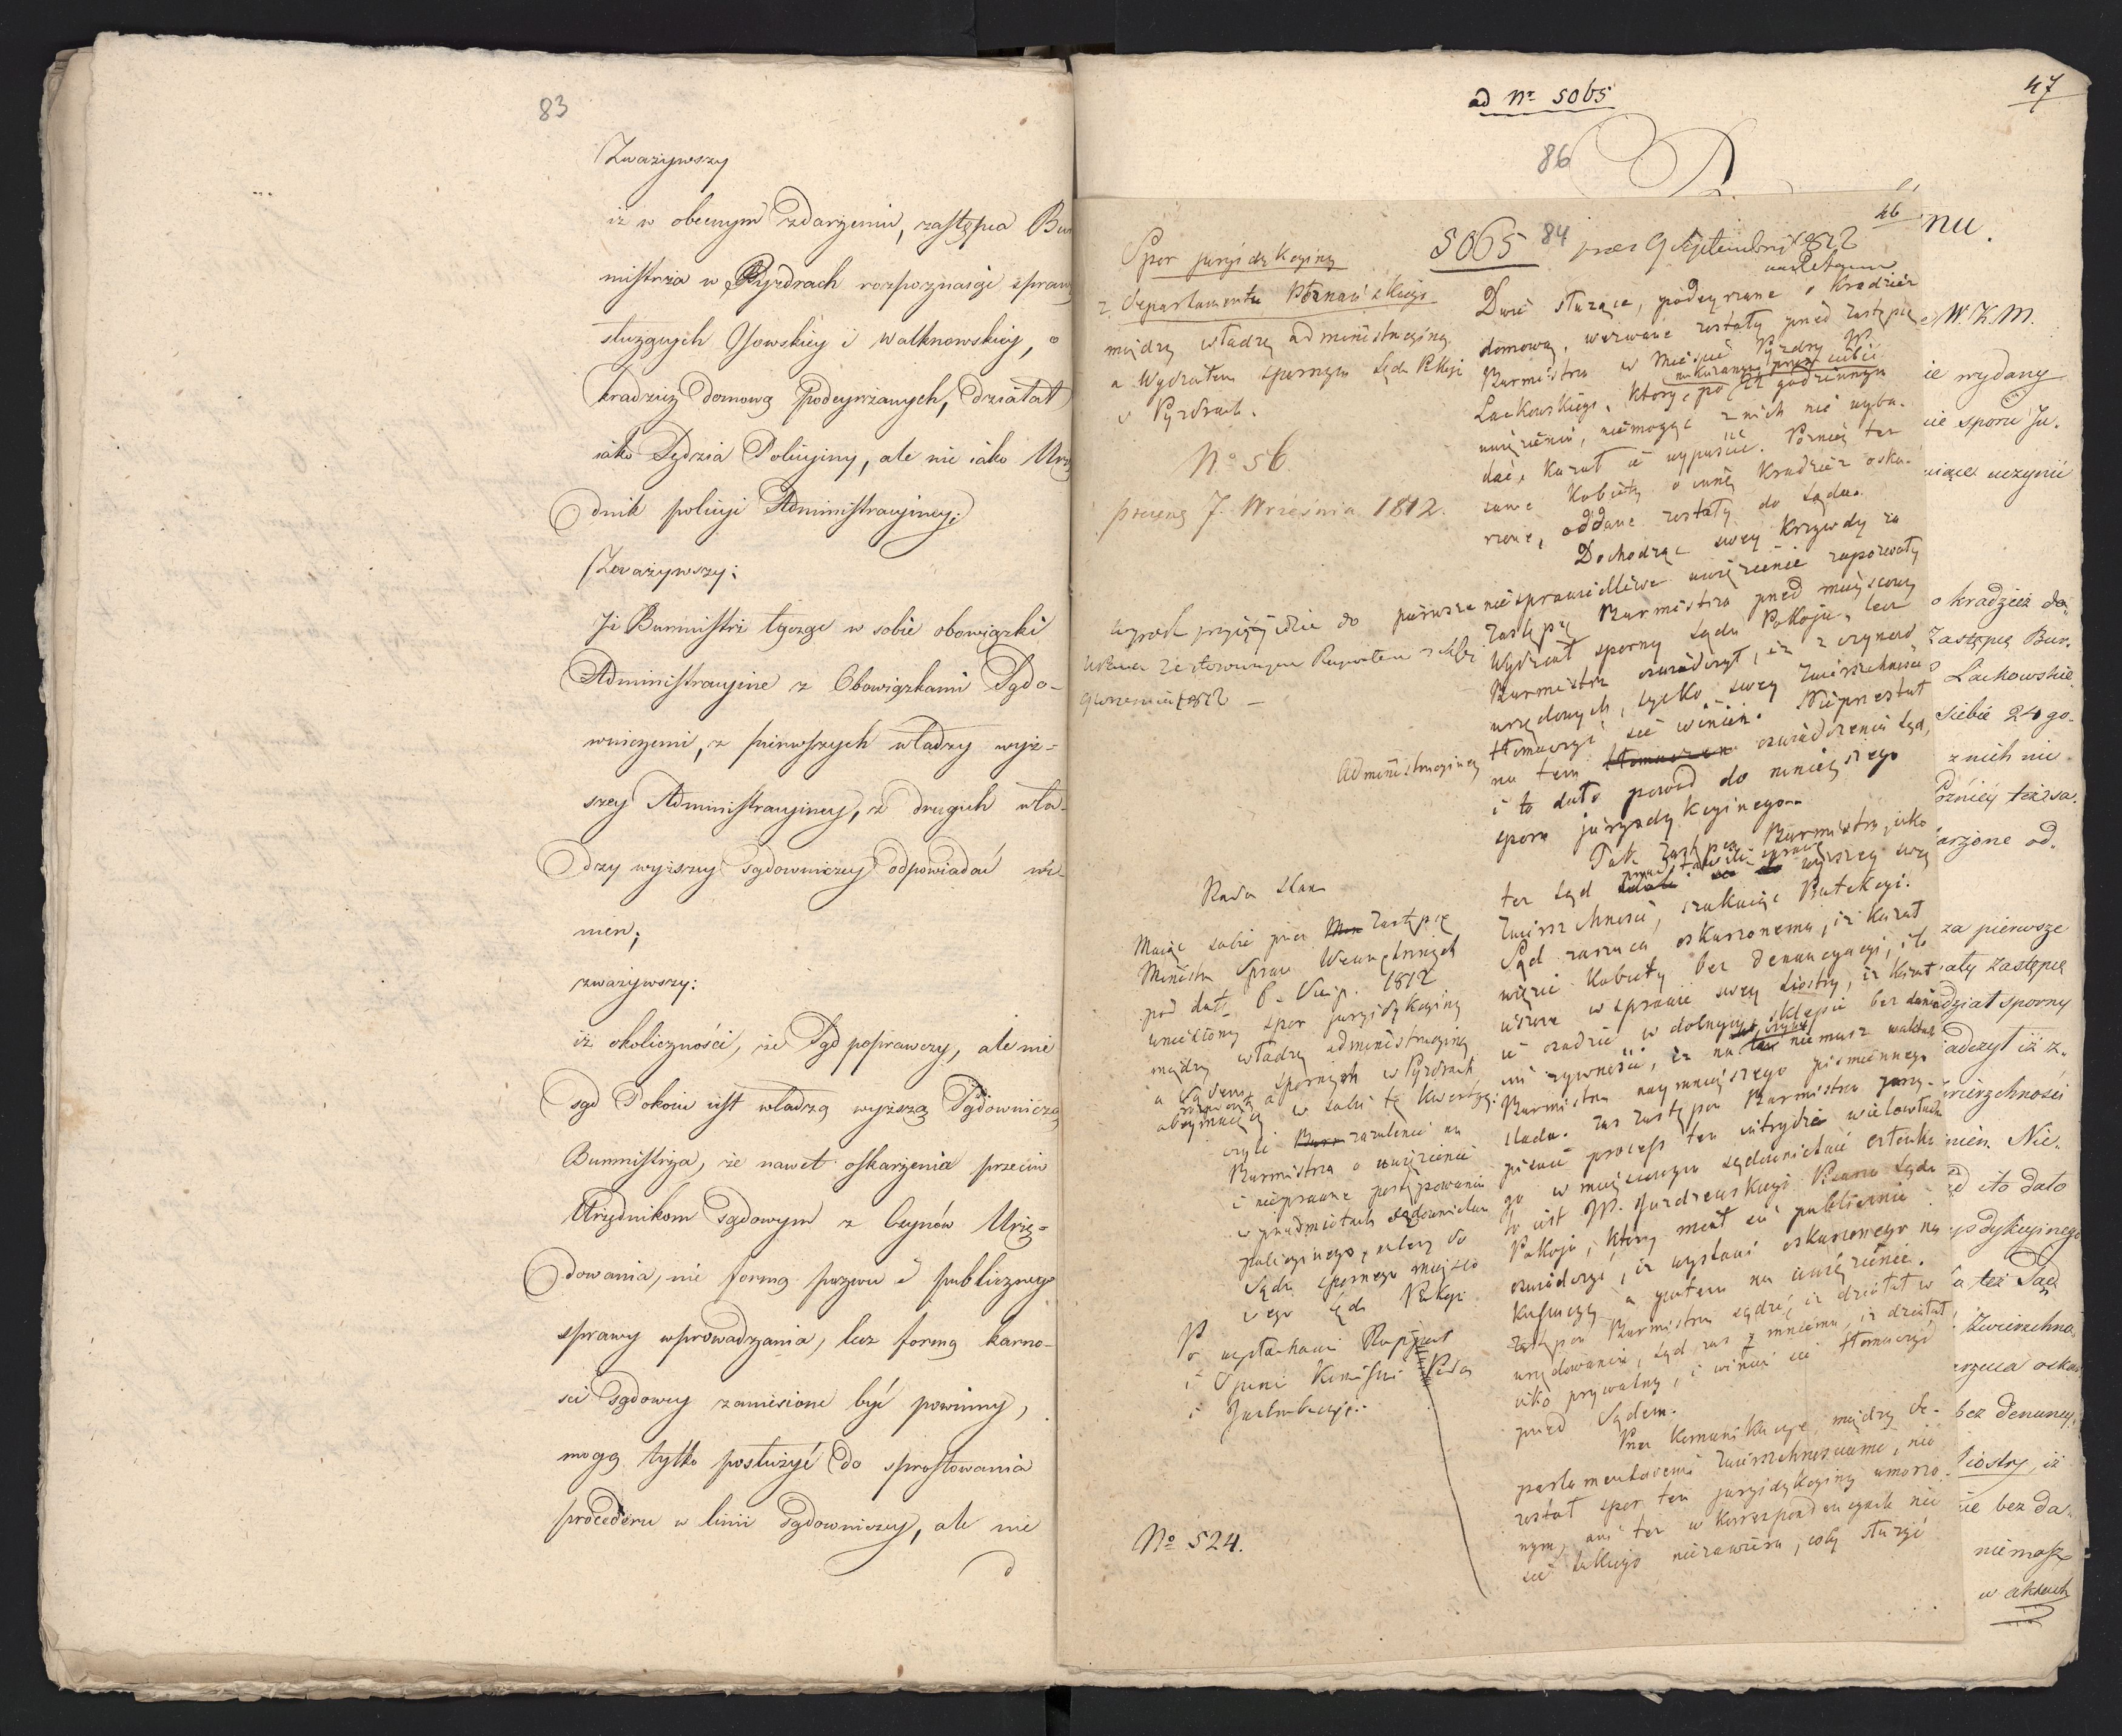 83
Zważywszy
iż w obecnym zdarzeniu, zastępca Bur
mistrza w Pyzdrach rozpoznaiąc spraw
służących Osowskiey i Walknowskiey, o
kradzież domową podeyrzanych, działał
iako Sędzia Policyiny, ale nie iako Urzę
dnik policyi Administracyiney;
Zważywszy:
Iż Burmistrz łącząc w sobie obowiązki
Administracyine z Obowiązkami Sądo-
wniczemi, z pierwszych władzy wyż-
szey Administracyiney, z drugich wła-
dzy wyższey sądowniczey odpowiadać wi-
nien;
zważywszy:
iż okoliczności, że Sąd poprawczy, ale nie
sąd Pokoiu iest władzą wyższą Sądowniczą
Burmistrza, że nawet oskarżenia przeciw
Urzędnikom sądowym z Czynów Urzę-
dowania, nie formą pozwu i publicznego
sprawy wprowadzania, lecz formą karno-
ści sądowey zaniesione być powinny,
mogą tylko posłużyć do sprostowania
procederu w linii sądowniczey, ale nie
ad Nr 5065
47
86
46
5065 84 prez 9 Septembris 1812
Spor juryzdykcyiny
z Departamentu Poznańskiego
między władzą administracyiną
a Wydziałem spornym Sądu Pokoju
w Pyzdrach.
No 56.
7. Września 1812.
9 Września 1812 –
Administracyiney
Rada Stanu
Maiąc sobie przez Zastępcę
Ministra Spraw Wewnętrznych
pod dat. 6. Sierp. 1812
wniesiony spor juryzdykcyiny
między władzą administracyiną
a Sądem spornym w Pyzdrach
w sobie tę kwestyę:
czyli zażalenie na
Burmistrza o uwięzienie
i nieprawne postępowanie
w przedmiotach sądownictwa
policyinego, należy do
Sądu spornego mieysco-
wego Sądu Pokoju
Po wysłuchaniu Rapportu
i Opinii Komissyi Podań
i Instrukcyi.
No 524.
Dwie służące, podeyrzane o kradzież
domową, wezwane zostały przed Zastępcę
Burmistrza w Mieście Pyzdry JP.
Lackowskiego, który po nakazanem przez siebie 24 godzinnym
uwięzieniu, niemogąc z nich nic wyba-
dać, kazał ie wypuścić. Pożniey też
same kobiety o inną kradzież oska-
rżone, oddane zostały do Sądu.
Dochodząc swey krzywdy za
pierwsze niesprawiedliwe uwięzienie zapozwały
Zastępcę Burmistrza przed mieyscowy
Wydział sporny Sądu Pokoju, lecz
Burmistrz oświadczył, iż z czynów
urzędowych, tylko swey Zwierzchności
tłomaczyć się winien. Nieprzestał
na tem oświadczeniu Sąd,
i to dało powód do ninieyszego
sporu juryzdykcyinego.
Tak Zastępca Burmistrza jako
też Sąd przedstawili sprawę wyższey swey
Zwierzchności, szukaiąc Protekcyi.
Sąd zarzuca oskarżonemu, iż kazał
więzić kobiety bez denuncyacyi, i to
ieszcze w sprawie swey siostry, iż kazał
ie osadzić w dolnym sklepie bez dania
im żywności, iż na to niemasz w aktach
Burmistrza naymnieyszego piśmiennego
śladu. Zaś Zastępca Burmistrza przy-
pisuie process ten intrydze wielowładne-
go w mieyscowym sądownictwie człowieka
to iest JP. Jurdzewskiego Pisarza Sądu
Pokoju, który miał się publicznie
oświadczyć, iż wystawi oskarżonego na
koszta, a potem na uwięzienie.
Zastępca Burmistrza sądzi, iż działał w
urzędowaniu, Sąd zaś mniema, iż działał
iako prywatny, i winien się tłomaczyć
przed Sądem.
Przez kommunikacye między de-
partamentowemi Zwierzchnościami, nie
został spor ten juryzdykcyiny umorzo-
nym, ani też w korrespondencyach nic
się takiego niezawiera, coby służyć
nu.
W. K. M.
ie wydany
nie sporu Ju-
uczynić
o kradzież do-
Zastępcę Bur-
Lackowskie-
siebie 24 go-
z nich nic
Pożniey też sa-
arżone od-
za pierwsze
ały Zastępcę
dział sporny
adczył iż z
wierzchności
nien. Nie-
ąd i to dało
yzdykcyinego
a też Sąd
Zwierzchno-
arzuca oska-
bez denuncy-
siostry, iż
ie bez da-
niemasz
w aktach